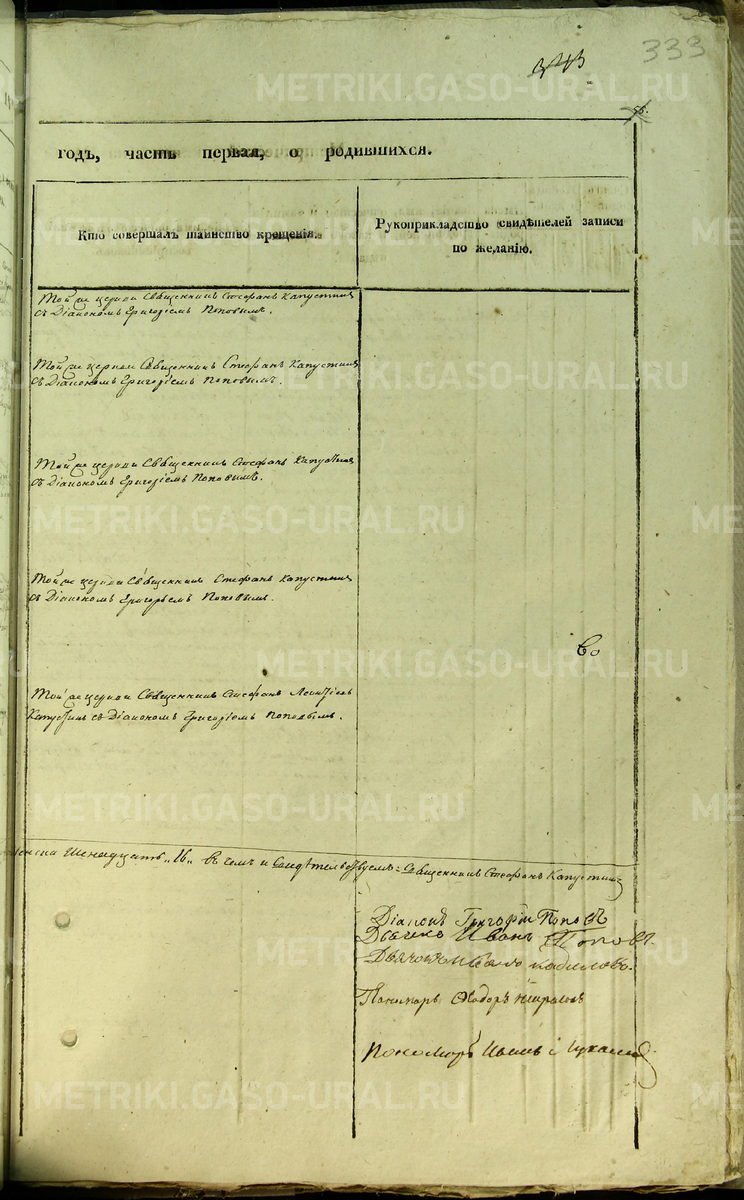 333
343
56.
годъ, часть первая, о родившихся.
Кто совершалъ таинство крещенія.
Рукоприкладство свидѣтелей записи
по желанію.
Той же церкви Священникъ Стефанъ Капустинъ
съ Діакономъ Григоріемъ Поповымъ.
Той же церкви Священникъ Стефанъ Капустинъ
съ Діакономъ Григоріемъ Поповымъ.
Той же церкви Священникъ Стефанъ Капустинъ
съ Діакономъ Григоріемъ Поповымъ.
Той же церкви Священникъ Стефанъ Капустинъ
съ Діакономъ Григорьемъ Поповымъ.
Во
Той же церкви Священникъ Стефанъ
Капустинъ съ Діакономъ Григоріемъ Поповымъ.
"16" въ чемъ и свидѣтельствуемъ: Священникъ Стефанъ Капустинъ
Діаконъ Григорій Поповъ
Дьячко Иванъ Поповъ.
Пономарь Ѳедоръ
METRIKI.GASO-URAL.RU